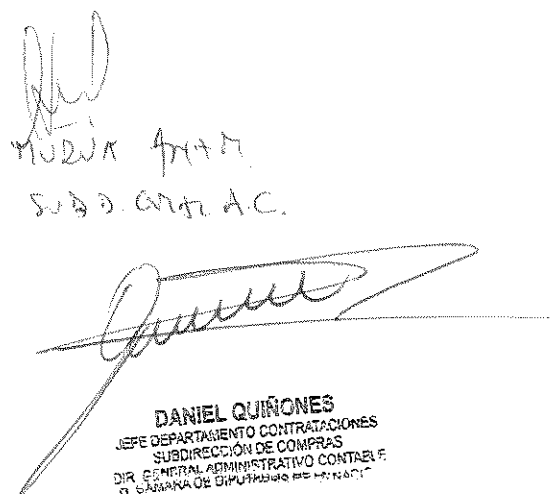 SUB D. GRAL A.C.
DANIEL QUIÑONES
JEFE DEPARTAMENTO CONTRATACIONES
SUBDIRECCIÓN DE COMPRAS
DIR. GENERAL ADMINISTRATIVO CONTABLE
H. CAMARA DE DIPUTADOS DE